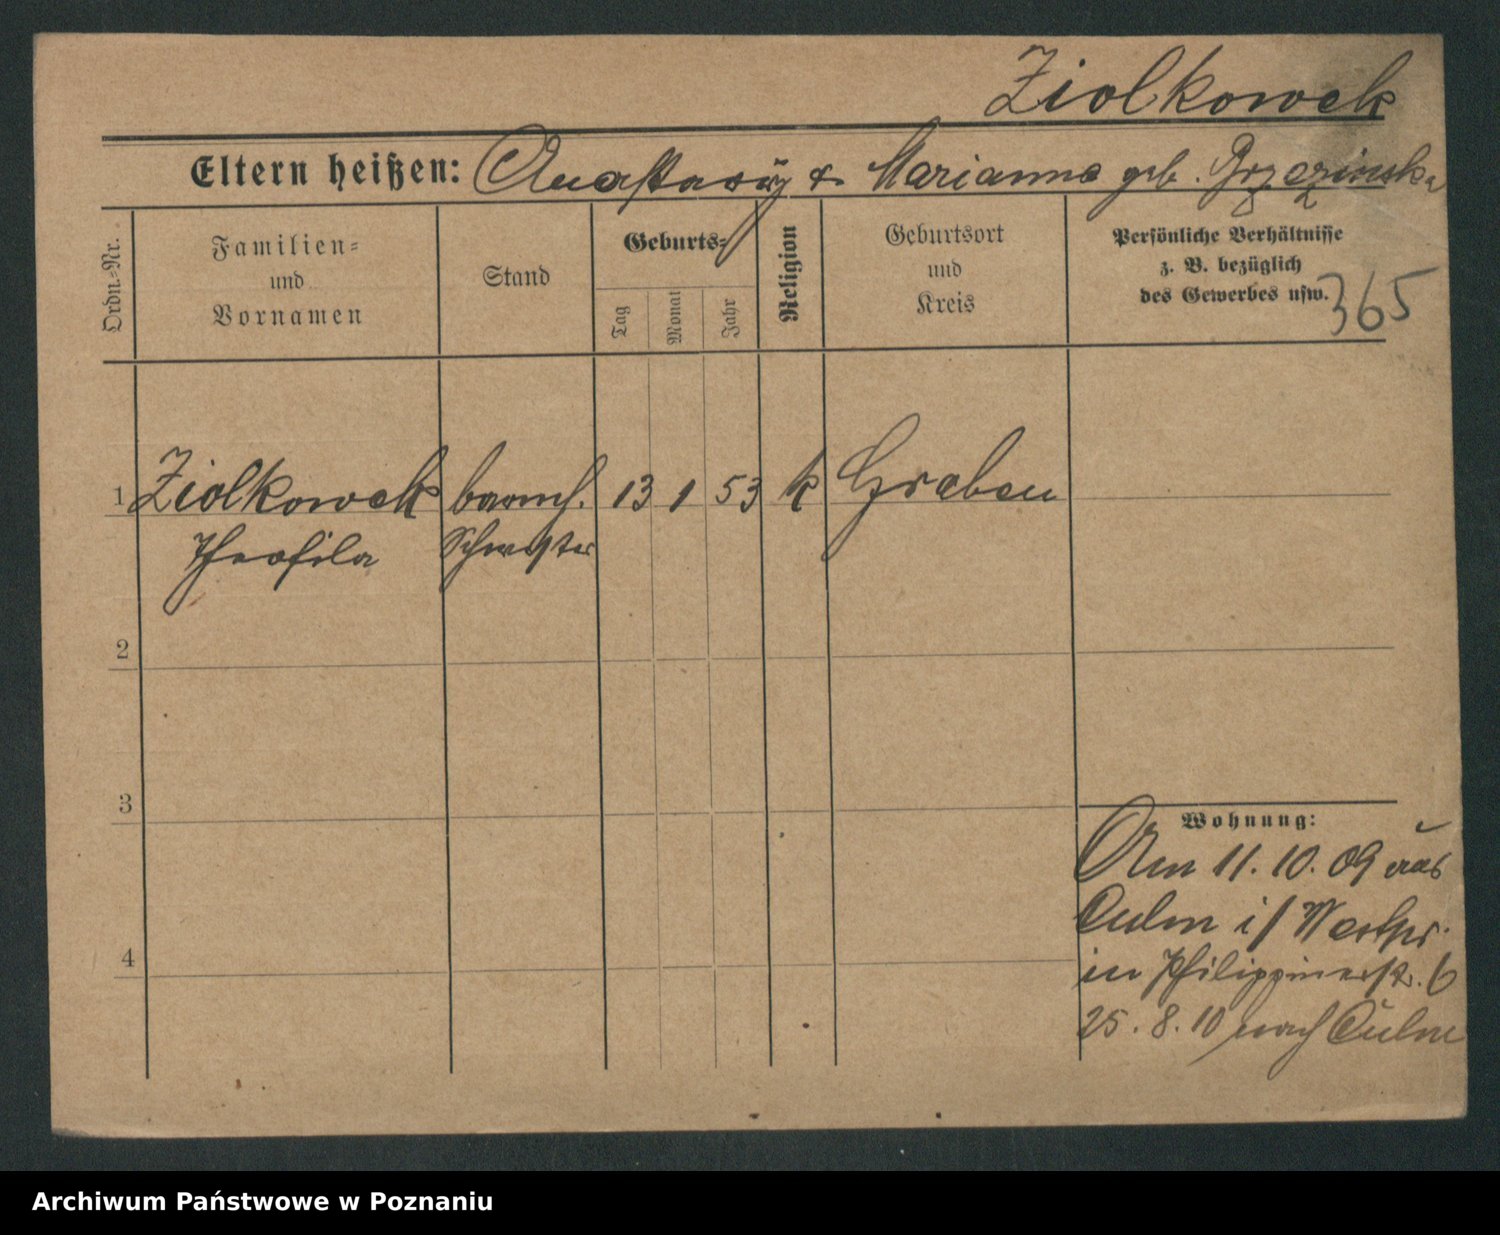 Ziolkowek
Eltern heißen: Anastasius & Marianna geb. Brzezinska
Ordn.-Nr.
Familien-
und
Vornamen
Stand
Geburts-
Tag
Monat
Jahr
Religion
Geburtsort
und
Kreis
Persönliche Verhältnisse
z. B. bezüglich
des Gewerbes usw.
365
1 Ziolkowek barmh. 13 1 53 k Graben
Theofila Schwester
2
3
Wohnung:
Am 11. 10. 09 aus
Culm i/Westpr.
4
in Philippinerstr. 6
25. 8. 10 nach Culm
Archiwum Państwowe w Poznaniu